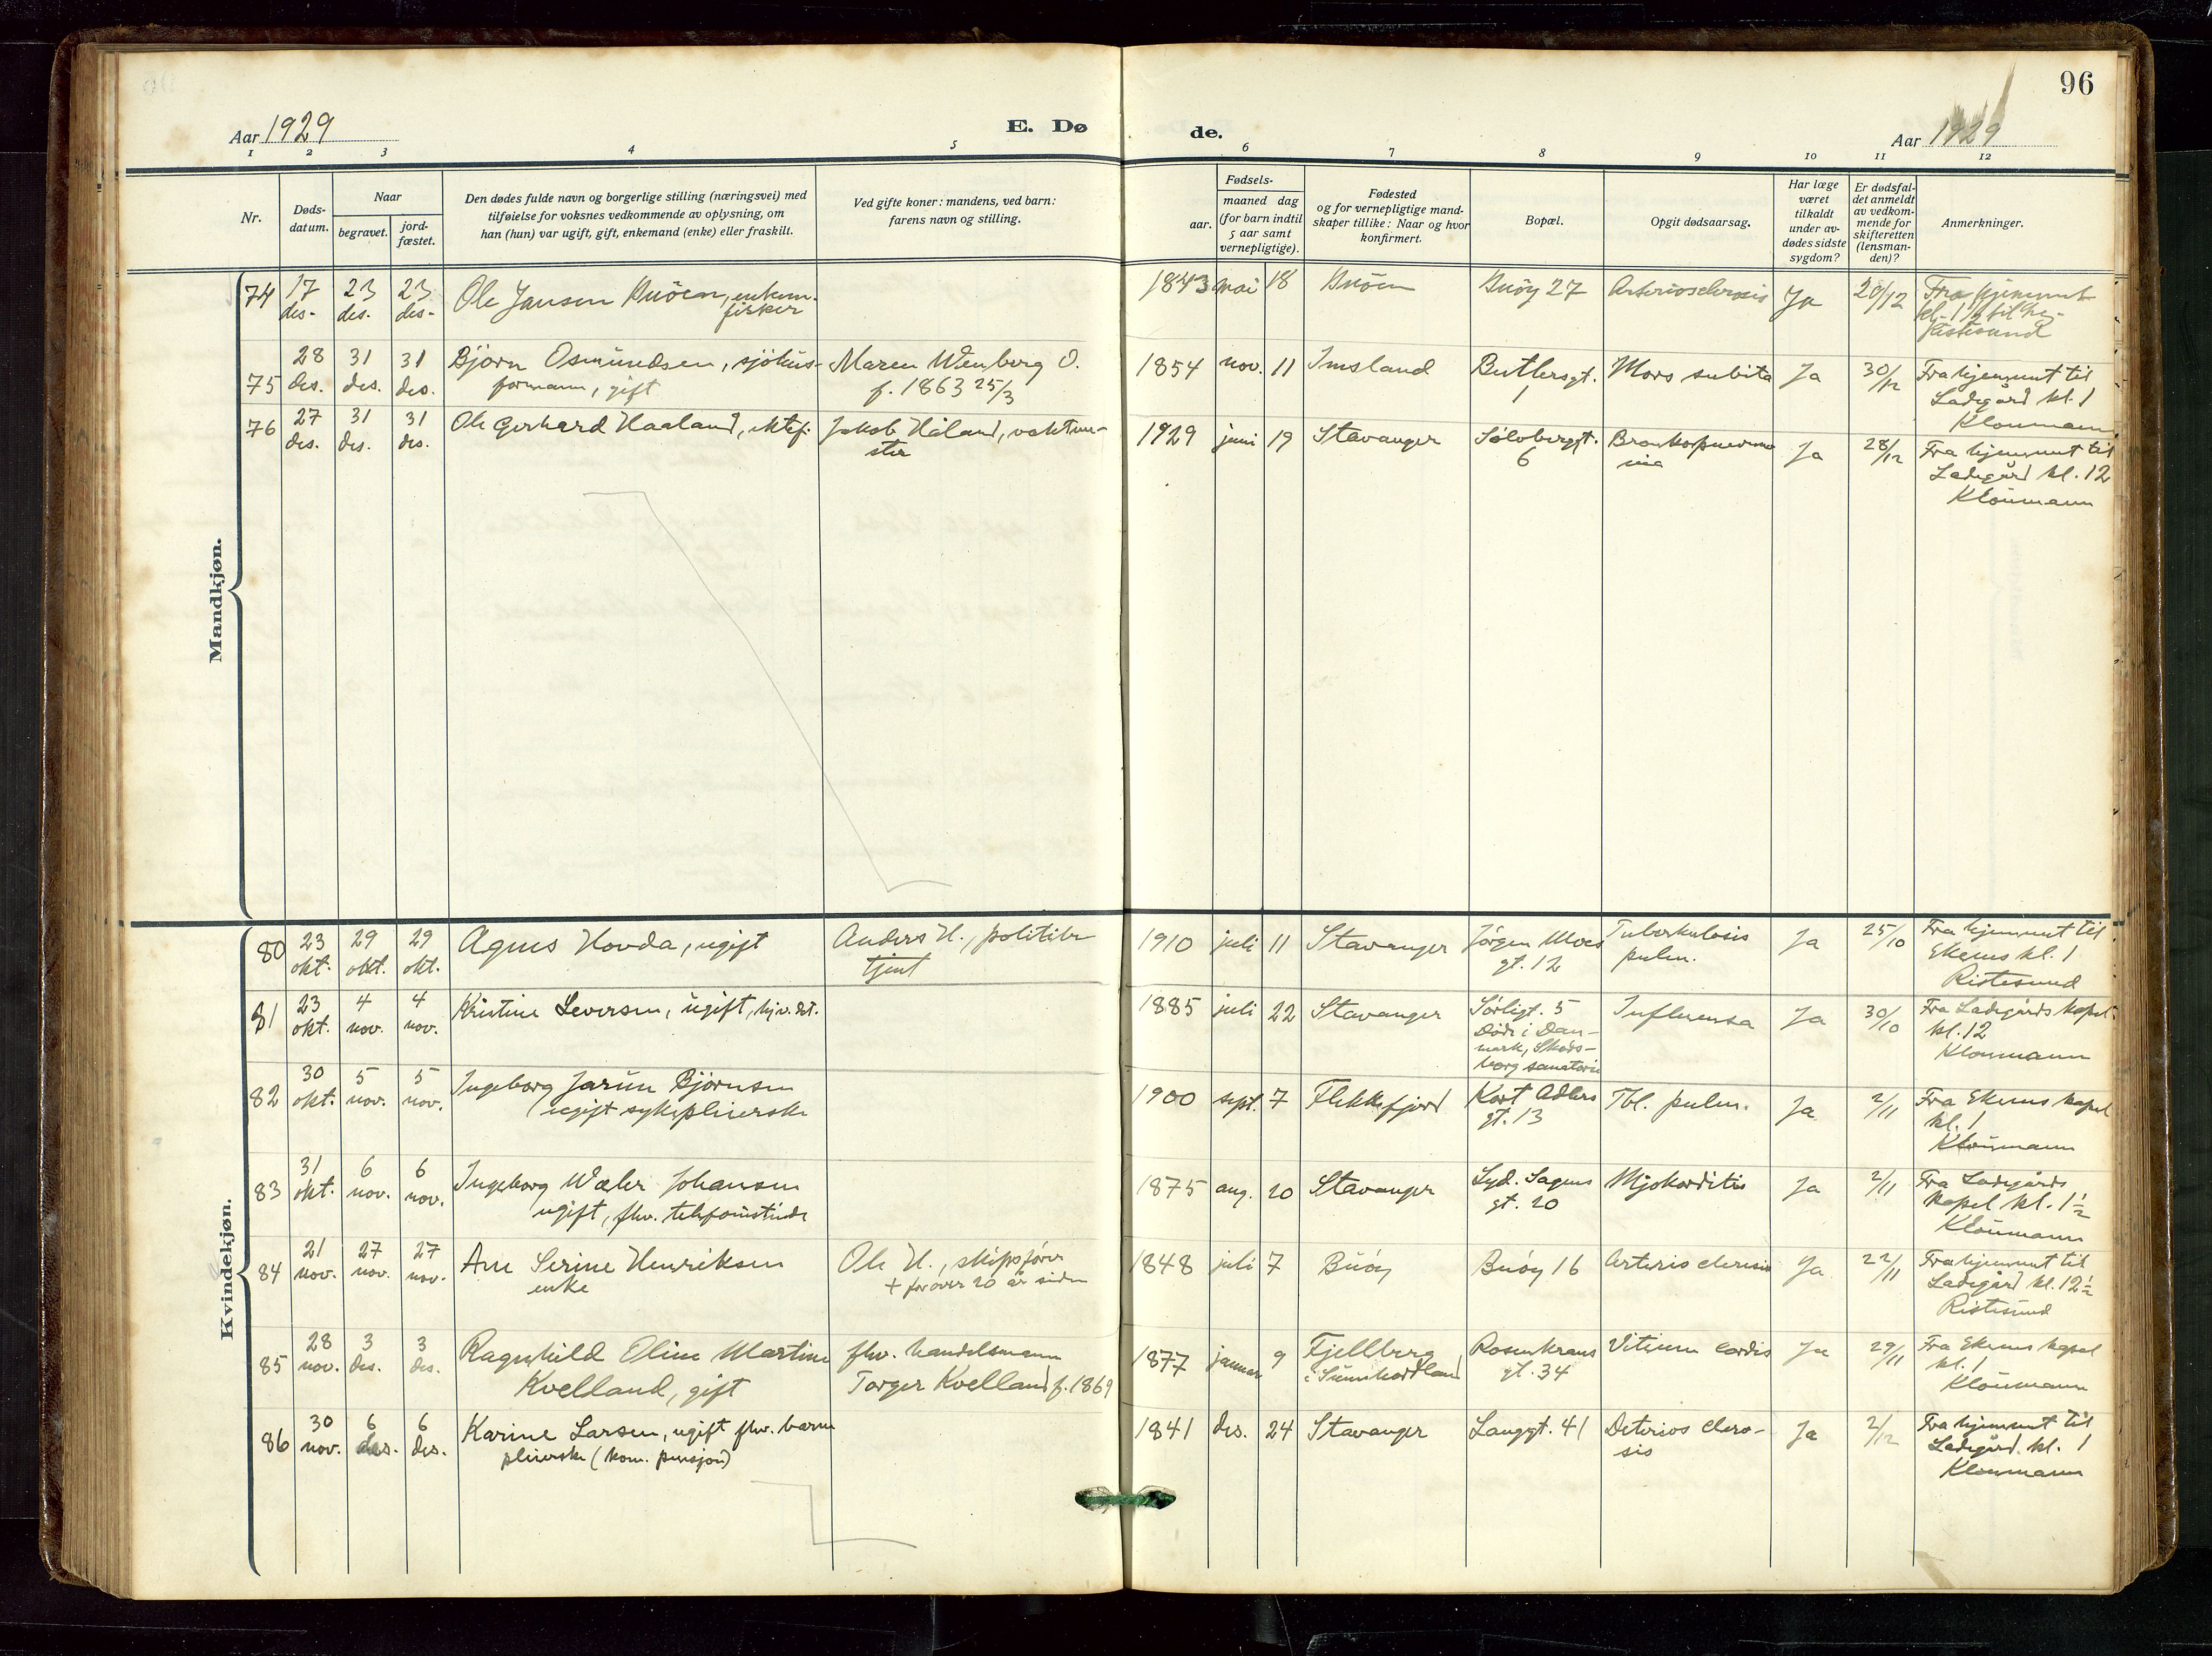 96
Aar 1929
E. Dø
de.
Aar 1929
1 2 3 4 5 6 7 8 9 10 11 12
Nr.
Døds-
datum.
Naar
begravet.
jord-
fæstet.
Den dødes fulde navn og borgerlige stilling (næringsvei) med
tilføielse for voksnes vedkommende av oplysning, om
han (hun) var ugift, gift, enkemand (enke) eller fraskilt.
Ved gifte koner: mandens, ved barn:
farens navn og stilling.
Fødsels-
aar.
maaned dag
(for barn indtil
5 aar samt
vernepligtige).
Fødested
og for vernepligtige mand-
skaper tillike: Naar og hvor
konfirmert.
Bopæl.
Opgit dødsaarsag.
Har læge
været
tilkaldt
under av-
dødes sidste
sygdom?
Er dødsfal-
det anmeldt
av vedkom-
mende for
skifteretten
(lensman-
den)?
Anmerkninger.
Mandkjøn.
74 17 des. 23 des. 23 des. Ole Jansen Buöen, enkem.
fisker
1843 mai 18 Buöen Buöy 27 Arteriosclerosis Ja 20/12 Fra hjemmet
kl. 1½ til
Ristesund
75 28 des. 31 des. 31 des. Björn Osmundsen, sjöhus-
formann, gift
Maren Wenberg O.
f. 1863 25/3
1854 nov. 11 Imsland Butlersgt.
1
Mors subita Ja 30/12 Fra hjemmet til
Ladegård kl. 1
Kloumann
76 27 des. 31 des. 31 des. Ole Gerhard Haaland, ektef.
Jakob Håland, vaktme-
ster
1929 juni 19 Stavanger Sölvbergt.
6
Bronkopneumo
nia
Ja 28/12 Fra hjemmet til
Ladegård kl. 12
Kloumann
Kvindekjøn.
80 23 okt. 29 okt. 29 okt. Agnes Hovda, ugift
Anders H., politibe
tjent
1910 juli 11 Stavanger Jörgen Moes
gt. 12
Tuberkulosis
pulm.
Ja 25/10 Fra hjemmet til
Ekenes kl. 1
Ristesund
81 23 okt. 4 nov. 4 nov. Kristine Seversen, ugift, hjv. dt.
1885 juli 22 Stavanger Sörligt. 5
Död i Dan-
mark, Skods-
borg sanatorie
Influensa Ja 30/10 Fra Ladegårds kapel
kl. 12
Kloumann
82 30 okt. 5 nov. 5 nov. Ingeborg Jarun Björnsen
ugift sykepleierske
1900 sept. 7 Flekkefjord Kort Adlers
gt. 13
Tbl. pulm. Ja 2/11 Fra Ekenes kapel
kl. 1
Kloumann
83 31 okt. 6 nov. 6 nov. Ingeborg Wæler Johansen
ugift, fhv. telefonistinde
1875 aug. 20 Stavanger Lyd. Sagens
gt. 20
Myokarditis Ja 2/11 Fra Ladegårds
kapel kl. 1½
Kloumann
84 21 nov. 27 nov. 27 nov. Ane Serine Henriksen
enke
Ole H., skipsförer
+ for over 20 år siden
1848 juli 7 Buöy Buöy 16 Arteriosclerosis Ja 22/11 Fra hjemmet til
Ladegård kl. 12½
Ristesund
85 28 nov. 3 des. 3 des. Ragnhild Oline Martine
Kvelland, gift
fhv. handelsmann
Torger Kvelland f. 1869
1877 januar 9 Fjellberg
i Sunnhordland
Rosenkrans
gt. 34
Vitium cordis Ja 29/11 Fra Ekenes kapel
kl. 1
Kloumann
86 30 nov. 6 des. 6 des. Karine Larsen, ugift fhv. barne
pleierske (kom. pensjon)
1841 des. 24 Stavanger Langgt. 41 Deteriosclero-
sis
Ja 2/12 Fra hjemmet til
Ladegård kl. 1
Kloumann